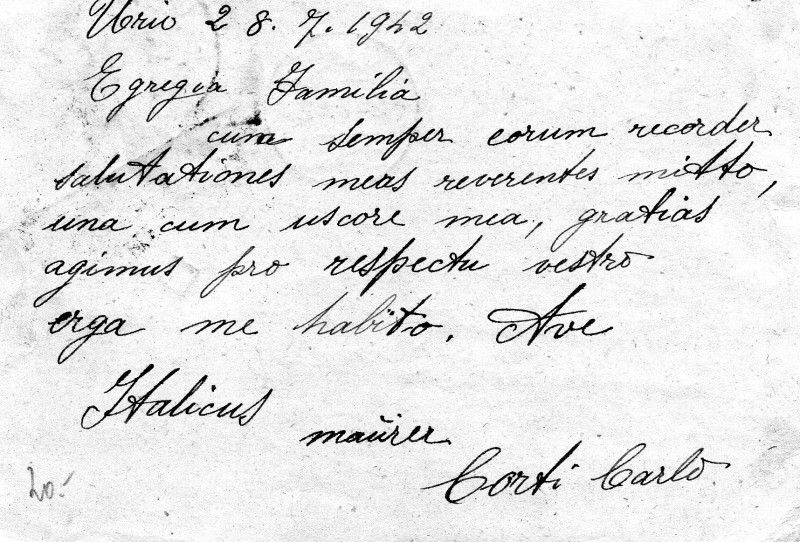 Urio 28.7.1942
Egregia Familia
cum semper eorum recorder
salutationes meas reverentes mitto,
una cum uscore mea, gratias
agimus pro respectu vestro
erga me habito. Ave
Italicus
maürer
Corti Carlo
20.-